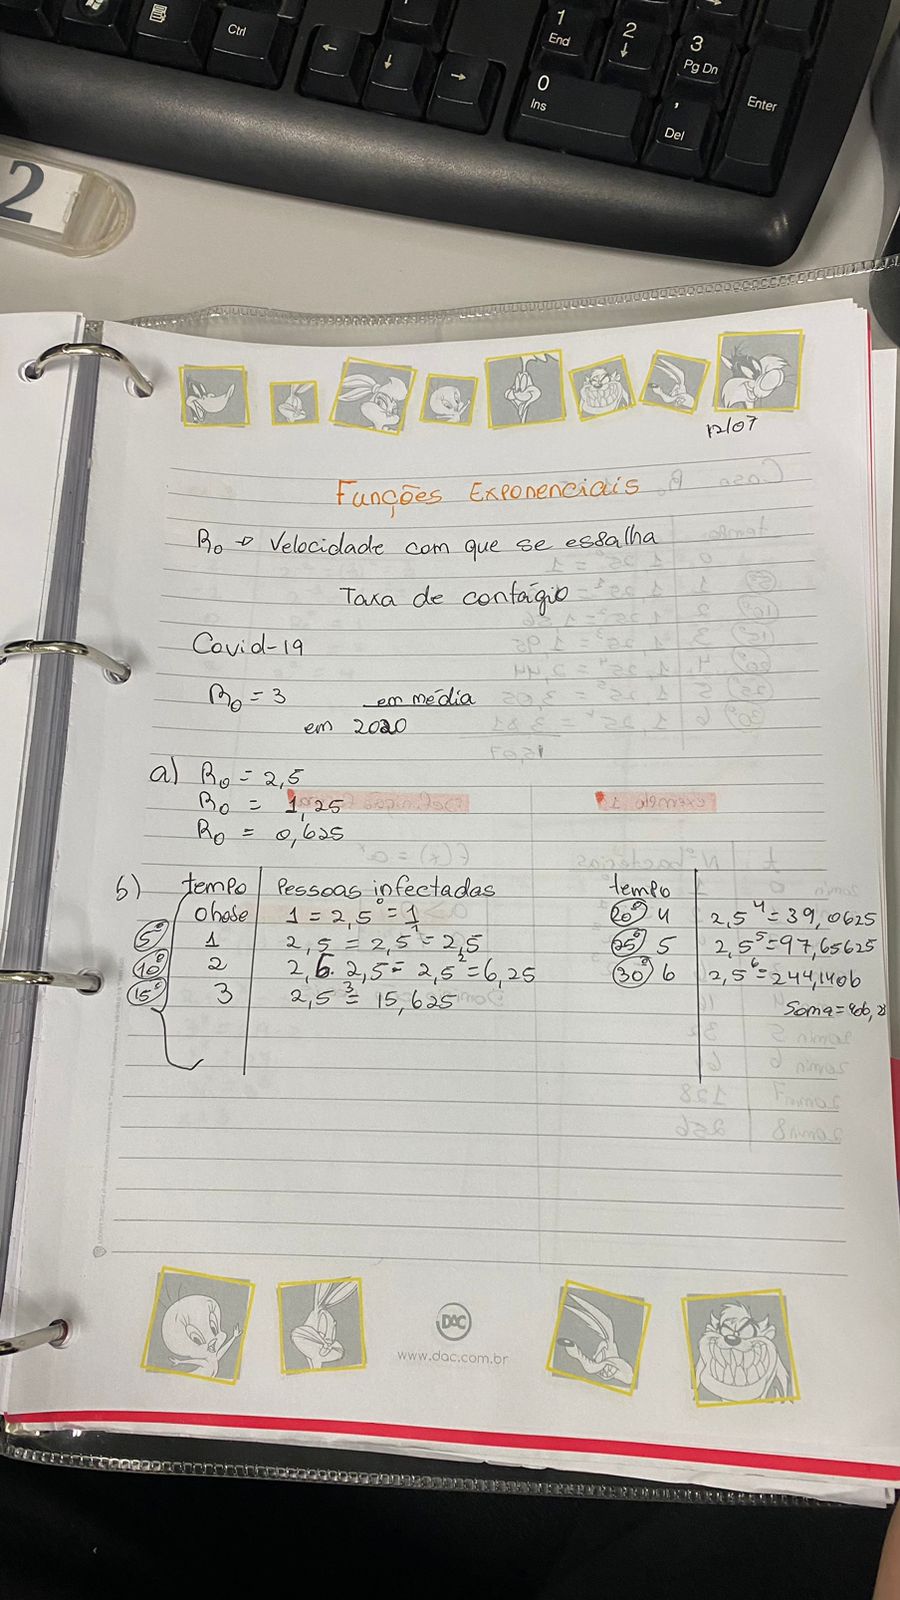 Ctrl
1
End
2
3
Pg Dn
0
Ins
,
Del
Enter
2
12/07
Funções Exponenciais
R₀ → Velocidade com que se esßalha
Taxa de contágio
Covid-19
R₀ = 3 em média
em 2020
a) R₀ = 2,5
R₀ = 1,25
R₀ = 0,625
b) tempo Pessoas infectadas
0 hose 1 = 2,5⁰ = 1
5º 1 2,5 = 2,5¹ = 2,5
10º 2 2,5 . 2,5 = 2,5² = 6,25
15º 3 2,5³ = 15,625
tempo
20º 4 2,5⁴ = 39,0625
25º 5 2,5⁵ = 97,65625
30º 6 2,5⁶ = 244,1406
Soma = 406,2
DAC
www.dac.com.br